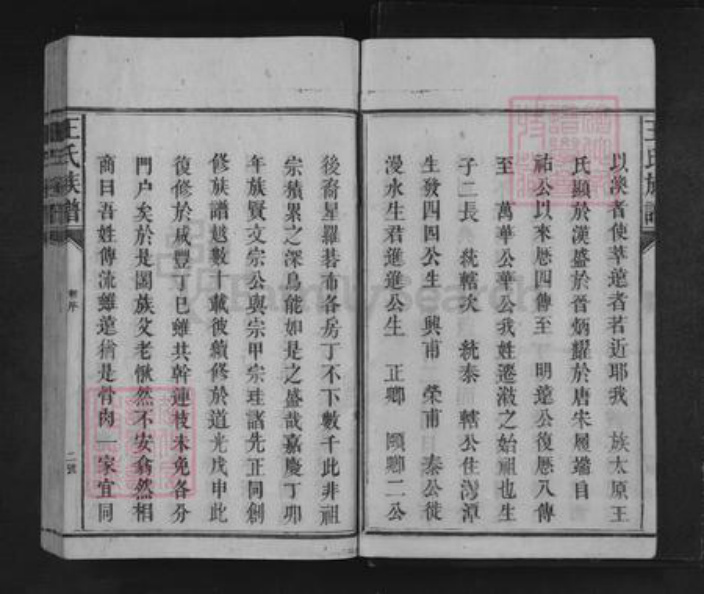 以渙者使萃遠者若近耶我 族太原王
氏顯於漢盛於晉炳耀於唐宋屢遷自
祐公以來歷四傳至 明遠公復歷八傳
至 萬華公華公我姓遷漵之始祖也生
子二長 統轄次 統泰 轄公住灣潭
生發四四公生 興甫 榮甫 泰公徙
漫水生君進進公生 正卿 頤卿二公
後裔星羅碁布各房丁不下數千此非祖
宗積累之深烏能如是之盛哉嘉慶丁卯
年族賢文宗公與宗甲宗珪諸先正同創
修族譜越數十載彼續修於道光戊申此
復修於咸豐丁巳雖共幹連枝未免各分
門戶矣於是闔族父老愀然不安翕然相
商曰吾姓傳流雖遠猶是骨肉一家宜同
王氏族譜
二號
王氏族譜
FamilySearch